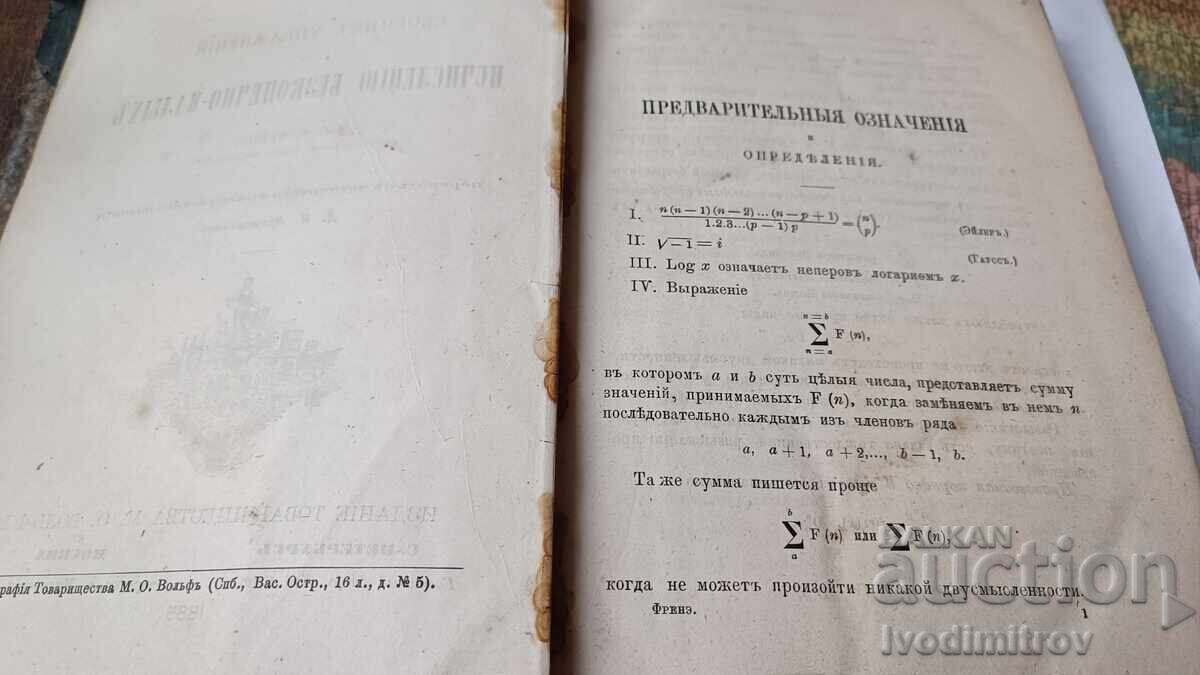 графія Товарищества М. О. Вольфъ (Спб., Вас. Остр., 16 л., д. № 5).
ПРЕДВАРИТЕЛЬНЫЯ ОЗНАЧЕНІЯ
и
ОПРЕДѢЛЕНІЯ.
I. n (n — 1) (n — 2) ... (n — p + 1) / 1.2.3...(p — 1) p = (n p). (Эйлеръ.)
II. √—1 = i (Гауссъ.)
III. Log x означаетъ неперовъ логариѳмъ x.
IV. Выраженіе
n = b
∑ F (n),
n = a
въ которомъ a и b суть цѣлыя числа, представляетъ сумму
значеній, принимаемыхъ F (n), когда замѣняемъ въ немъ n
послѣдовательно каждымъ изъ членовъ ряда
a, a + 1, a + 2,..., b — 1, b.
Та же сумма пишется проще
b
∑ F (n) или ∑ F (n),
a
когда не можетъ произойти никакой двусмысленности.
Френэ. 1
BALKAN
auction
Ivodimitrov